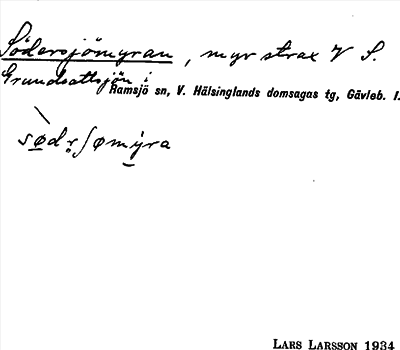 Södersjömyran, myr strax V S.
Grundsattsjön i
Ramsjö sn, V. Hälsinglands domsagas tg, Gävleb. l.
sø̲dr̥ʃømỳ̲ra
LARS LARSSON 1934